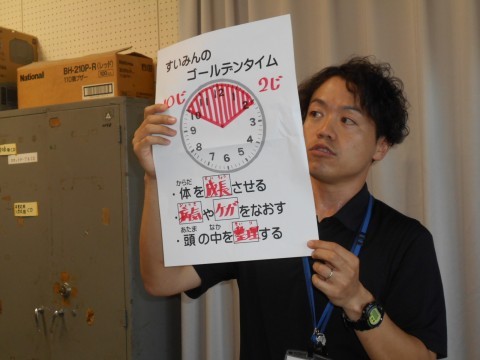 National
BH-210P-R(レッド)
すいみんの
ゴールデンタイム
10じ 2じ
12
1
2
3
4
5
6
7
8
9
10
11
からだ
・体を成長させる
・病気やケガをなおす
あたま なか
・頭の中を整理する